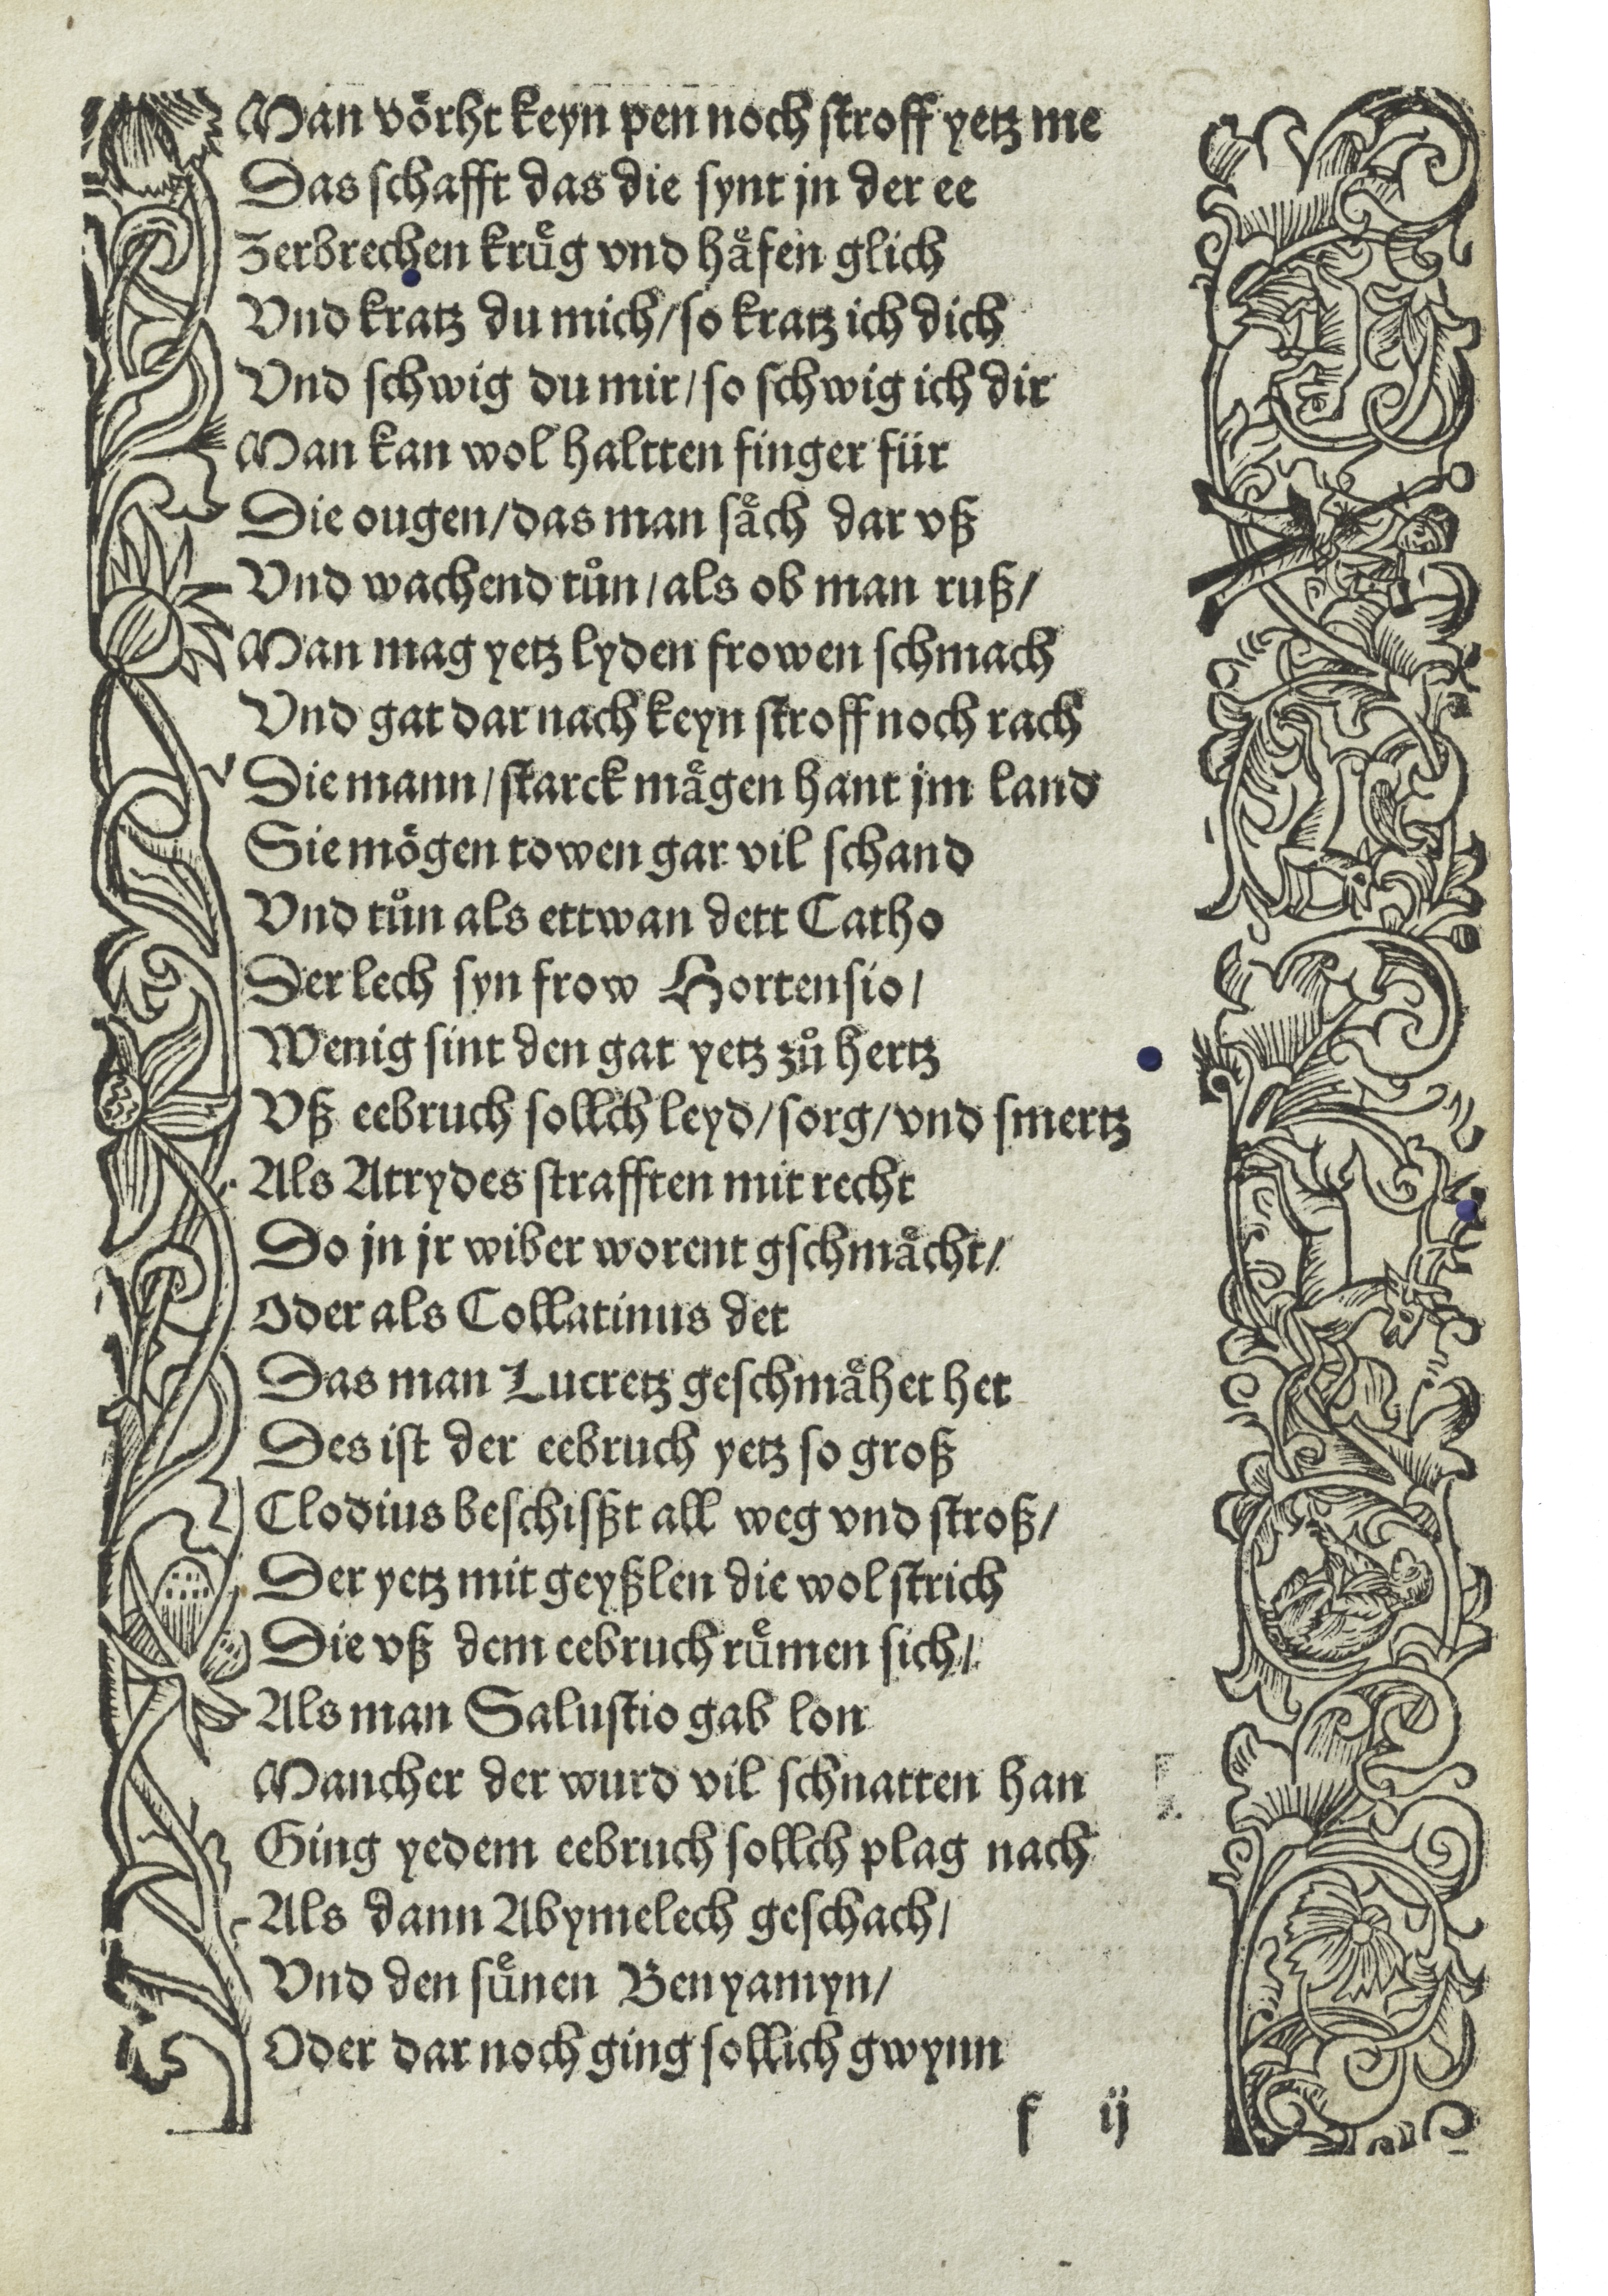 Man voͤrht keyn pen noch stroff yetz me
Das schafft das die synt jn der ee
Zerbrechen kruͤg vnd haͤfen glich
Vnd kratz du mich/ so kratz ich dich
Vnd schwig du mir/ so schwig ich dir
Man kan wol haltten finger für
Die ougen/ das man saͤch dar vß
Vnd wachend tuͦn/ als ob man ruß/
Man mag yetz lyden frowen schmach
Vnd gat dar nach keyn stroff noch rach
Die mann/ starck maͤgen hant jm land
Sie moͤgen towen gar vil schand
Vnd tuͦn als ettwan dett Catho
Der lech syn frow Hortensio/
Wenig sint den gat yetz zuͦ hertz
Vß eebruch sollch leyd/ sorg/ vnd smertz
Als Atrydes strafften mit recht
Do jn jr wiber worent gschmaͤcht/
Oder als Collatinus det
Das man Lucretz geschmaͤhet het
Des ist der eebruch yetz so groß
Clodius beschisßt all weg vnd stroß/
Der yetz mit geyßlen die wol strich
Die vß dem eebruch ruͤmen sich/
Als man Salustio gab lon
Mancher der wurd vil schnatten han
Ging yedem eebruch sollch plag nach
Als dann Abymelech geschach/
Vnd den suͤnen Benyamyn/
Oder dar noch ging sollich gwynn
f ij